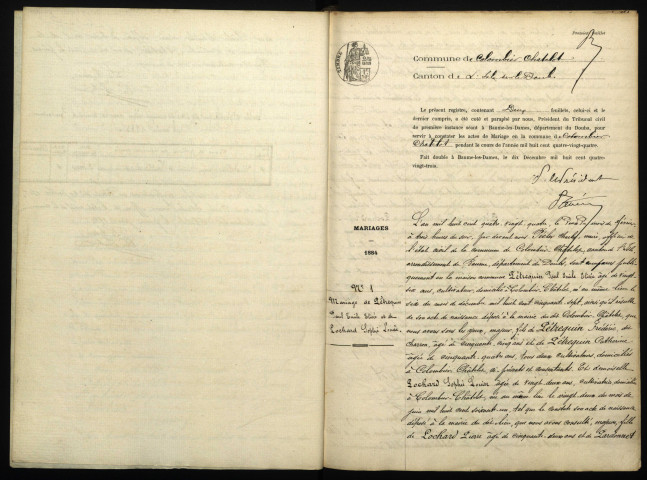 Premier feuillet
Commune de Colombier-Châtelot
Canton de L'Isle sur le Doubs
Le présent registre, contenant Deux feuillets, celui-ci et le
dernier compris, a été coté et paraphé par nous, Président du Tribunal civil
de première instance séant à Baume-les-Dames, département du Doubs, pour
servir à constater les actes de Mariage en la commune de Colombier
Châtelot pendant le cours de l'année mil huit cent quatre-vingt-quatre.
Fait double à Baume-les-Dames, le dix Décembre mil huit cent quatre-
vingt-trois.
Le Président
MARIAGES
1884
N° 1
Mariage de Pétrequin
Paul Emile et de
Lochard Sophie Louise
L'an mil huit cent quatre vingt quatre, le du mois de février
à trois heures du soir, par devant nous maire, officier de
l'état civil de la commune de Colombier-Châtelot, canton de l'Isle,
arrondissement de Baume, département du Doubs, sont comparus publi-
quement en la maison commune Pétrequin Paul Emile âgé de vingt
six ans, cultivateur, domicilié à Colombier-Châtelot, né au même lieu le
sept du mois de décembre mil huit cent cinquante sept, ainsi qu'il résulte
de son acte de naissance déposé à la mairie du dit Colombier-Châtelot, que
nous avons sous les yeux, majeur, fils de Pétrequin Frédéric, dit
charron, âgé de cinquante cinq ans et de Pétrequin Catherine
âgée de cinquante quatre ans, tous deux cultivateurs domiciliés
à Colombier-Châtelot, ci présents et consentants. Et demoiselle
Lochard Sophie Louise âgée de vingt deux ans, cultivatrice domiciliée
à Colombier-Châtelot, née au même lieu le vingt deux du mois de
juin mil huit cent soixante un tel que le constate son acte de naissance
déposé à la mairie du dit lieu, que nous avons consulté, majeure, fille
de Lochard Pierre âgé de cinquante deux ans et de